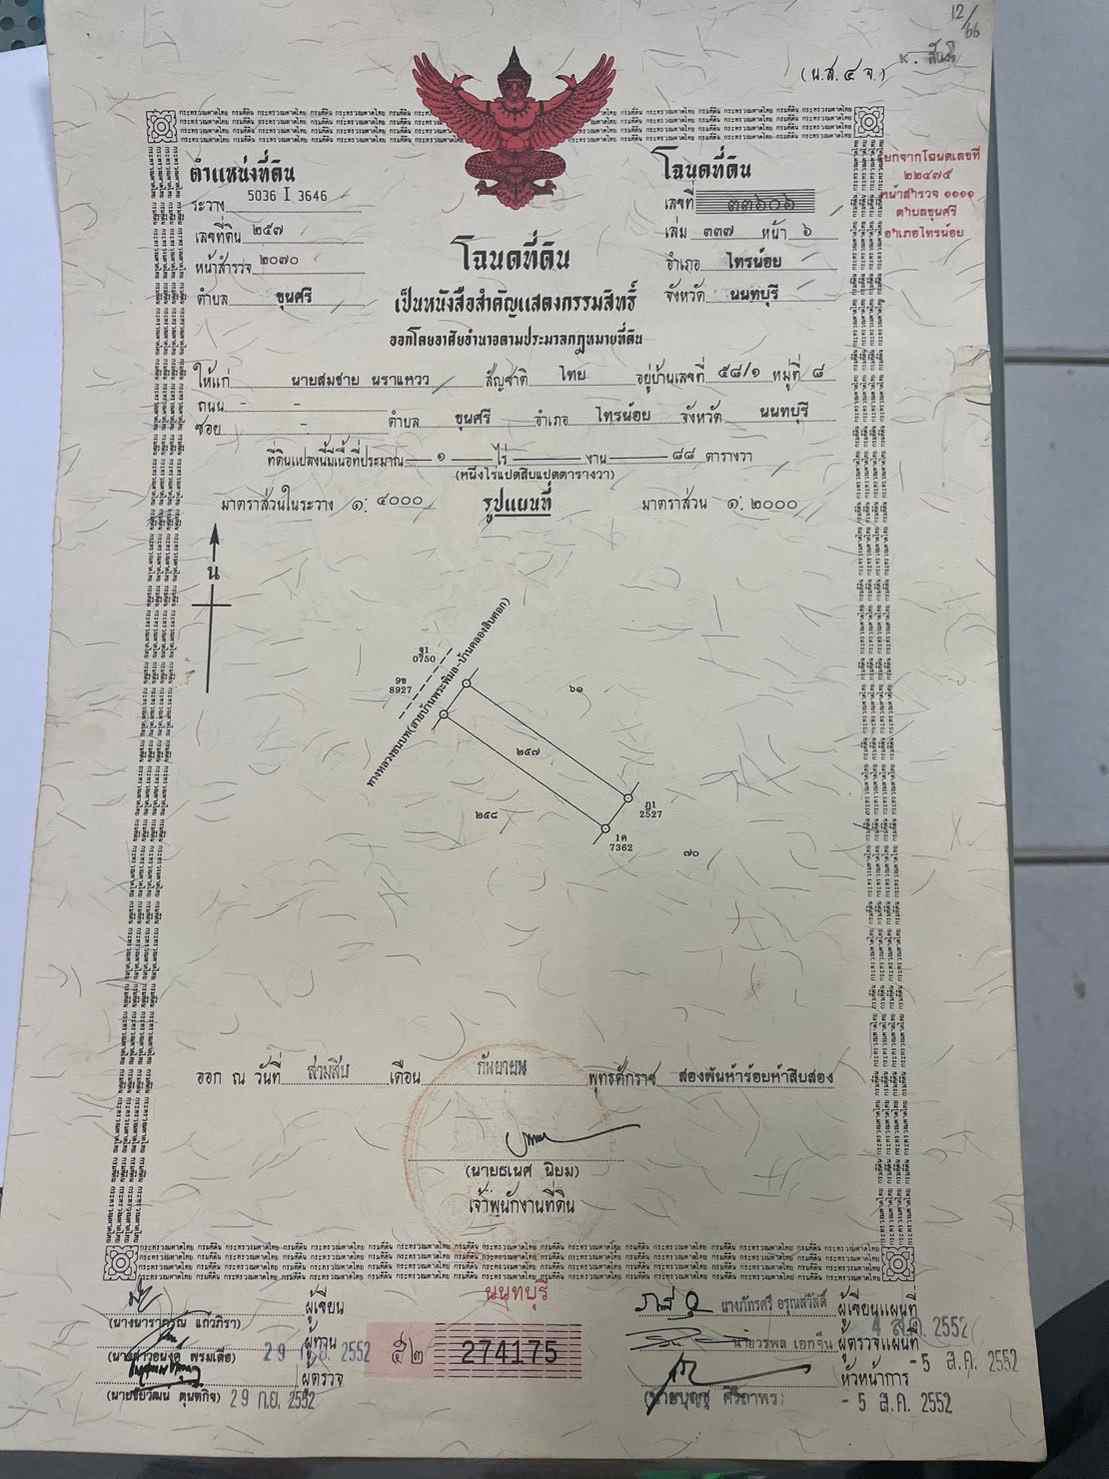 12/66
(น.ส.๔ จ.)
ตำแหน่งที่ดิน
ระวาง 5036 I 3646
เลขที่ดิน ๒๔๗
หน้าสำรวจ ๒๐๗๐
ตำบล ขุนศรี
โฉนดที่ดิน
เลขที่ ๓๓๖๐๖
เล่ม ๓๓๗ หน้า ๖
อำเภอ ไทรน้อย
จังหวัด นนทบุรี
แยกจากโฉนดเลขที่
๒๒๔๗๕
หน้าสำรวจ ๑๑๑๑
ตำบลขุนศรี
อำเภอไทรน้อย
โฉนดที่ดิน
เป็นหนังสือสำคัญแสดงกรรมสิทธิ์
ออกโดยอาศัยอำนาจตามประมวลกฎหมายที่ดิน
ให้แก่ นายสมชาย นราแหวว สัญชาติ ไทย อยู่บ้านเลขที่ ๕๘/๑ หมู่ที่ ๘
ถนน - -
ซอย - ตำบล ขุนศรี อำเภอ ไทรน้อย จังหวัด นนทบุรี
ที่ดินแปลงนี้มีเนื้อที่ประมาณ ๑ ไร่ งาน ๘๘ ตารางวา
(หนึ่งไร่แปดสิบแปดตารางวา)
มาตราส่วนในระวาง ๑: ๔๐๐๐ รูปแผนที่ มาตราส่วน ๑: ๒๐๐๐
น
ฐ1
0750
9ข
8927
ทางหลวงชนบท(สายบ้านพระพิมล-บ้านคลองสิบศอก)
๖๑
๒๔๗
๒๔๘
ฎ1
2527
1ค
7362
๗๐
ออก ณ วันที่ สามสิบ เดือน กันยายน พุทธศักราช สองพันห้าร้อยห้าสิบสอง
(นายธเนศ นิยม)
เจ้าพนักงานที่ดิน
นนทบุรี
(นางนารากุณ แก้วภิรา) ผู้เขียน
ผู้ทาน 29 ก.ย. 2552
ผู้ตรวจ
(นายชัยวัฒน์ ตุนตกิจ) 29 ก.ย. 2552
๕๒ 274175
นางภัทรศรี อรุณสวัสดิ์ ผู้เขียนแผนที่
4 ส.ค. 2552
นายวรพล เอกจีน ผู้ตรวจแผนที่
- 5 ส.ค. 2552
หัวหน้าการ
(นายบุญชู ศิริถาพร) - 5 ส.ค. 2552